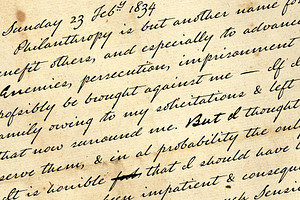 Sunday 23 Feby 1834
Philanthropy is but another name for
enefit others, and especially to advance
Enemies, persecution, imprisonment
rofsibly be brought against me — If I
amily owing to my solicitations & left
that now surround me. But I thought
serve them, & in al probability the onl
It is horrible that I should have
been impatient & consequ